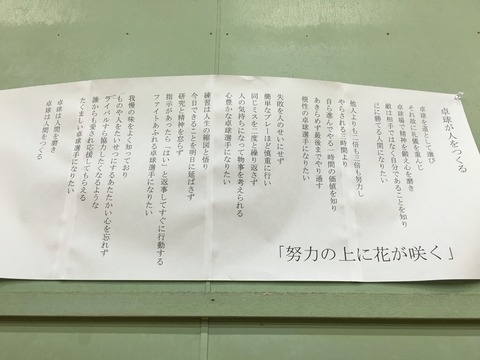 卓球が人をつくる
卓球を道として選び
それ故に礼儀を重んじ
卓球場で精神を鍛え心を磨き
敵は相手ではなく自分であることを知り
己に勝てる人間になりたい
他人よりも二倍も三倍も努力し
やらされる三時間より
自ら進んでやる一時間の価値を知り
あきらめず最後までやり通す
根性の卓球選手になりたい
失敗を人のせいにせず
簡単なプレーほど慎重に行い
同じミスを二度と繰り返さず
人の気持ちになって物事を考えられる
心豊かな卓球選手になりたい
練習は人生の縮図と悟り
今日できることを明日に延ばさず
研究と精神を怠らず
指示があったら「はい」と返事してすぐに行動する
ファイトあふれる卓球選手になりたい
我慢の味をよく知っており
ものや人をたいせつにするあたたかい心を忘れず
ライバルすら協力したくなるような
誰からも愛され応援してもらえる
たくましい卓球選手になりたい
卓球は人間を磨き
卓球は人間をつくる
「努力の上に花が咲く」